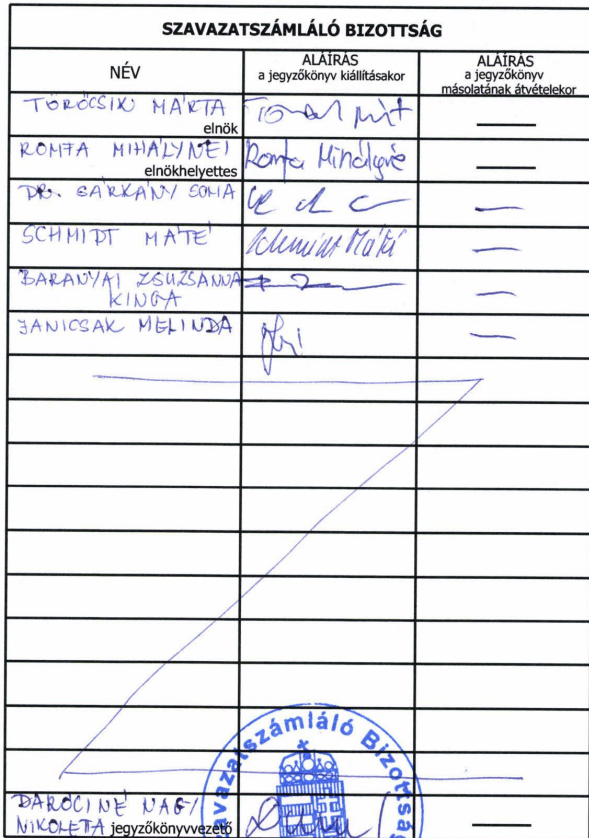 SZAVAZATSZÁMLÁLÓ BIZOTTSÁG
NÉV
ALÁÍRÁS
a jegyzőkönyv kiállításakor
ALÁÍRÁS
a jegyzőkönyv
másolatának átvételekor
TÖRÖCSIK MÁRTA
elnök
ROMFA MIHÁLYNÉ
elnökhelyettes
Romfa Mihályné
DR. SÁRKÁNY SOMA
SCHMIDT MÁTÉ
Schmidt Máté
BARANYAI ZSUZSANNA
KINGA
JANICSAK MELINDA
Szavazatszámláló Bizottság
DARÓCINÉ NAGY
NIKOLETTA jegyzőkönyvvezető